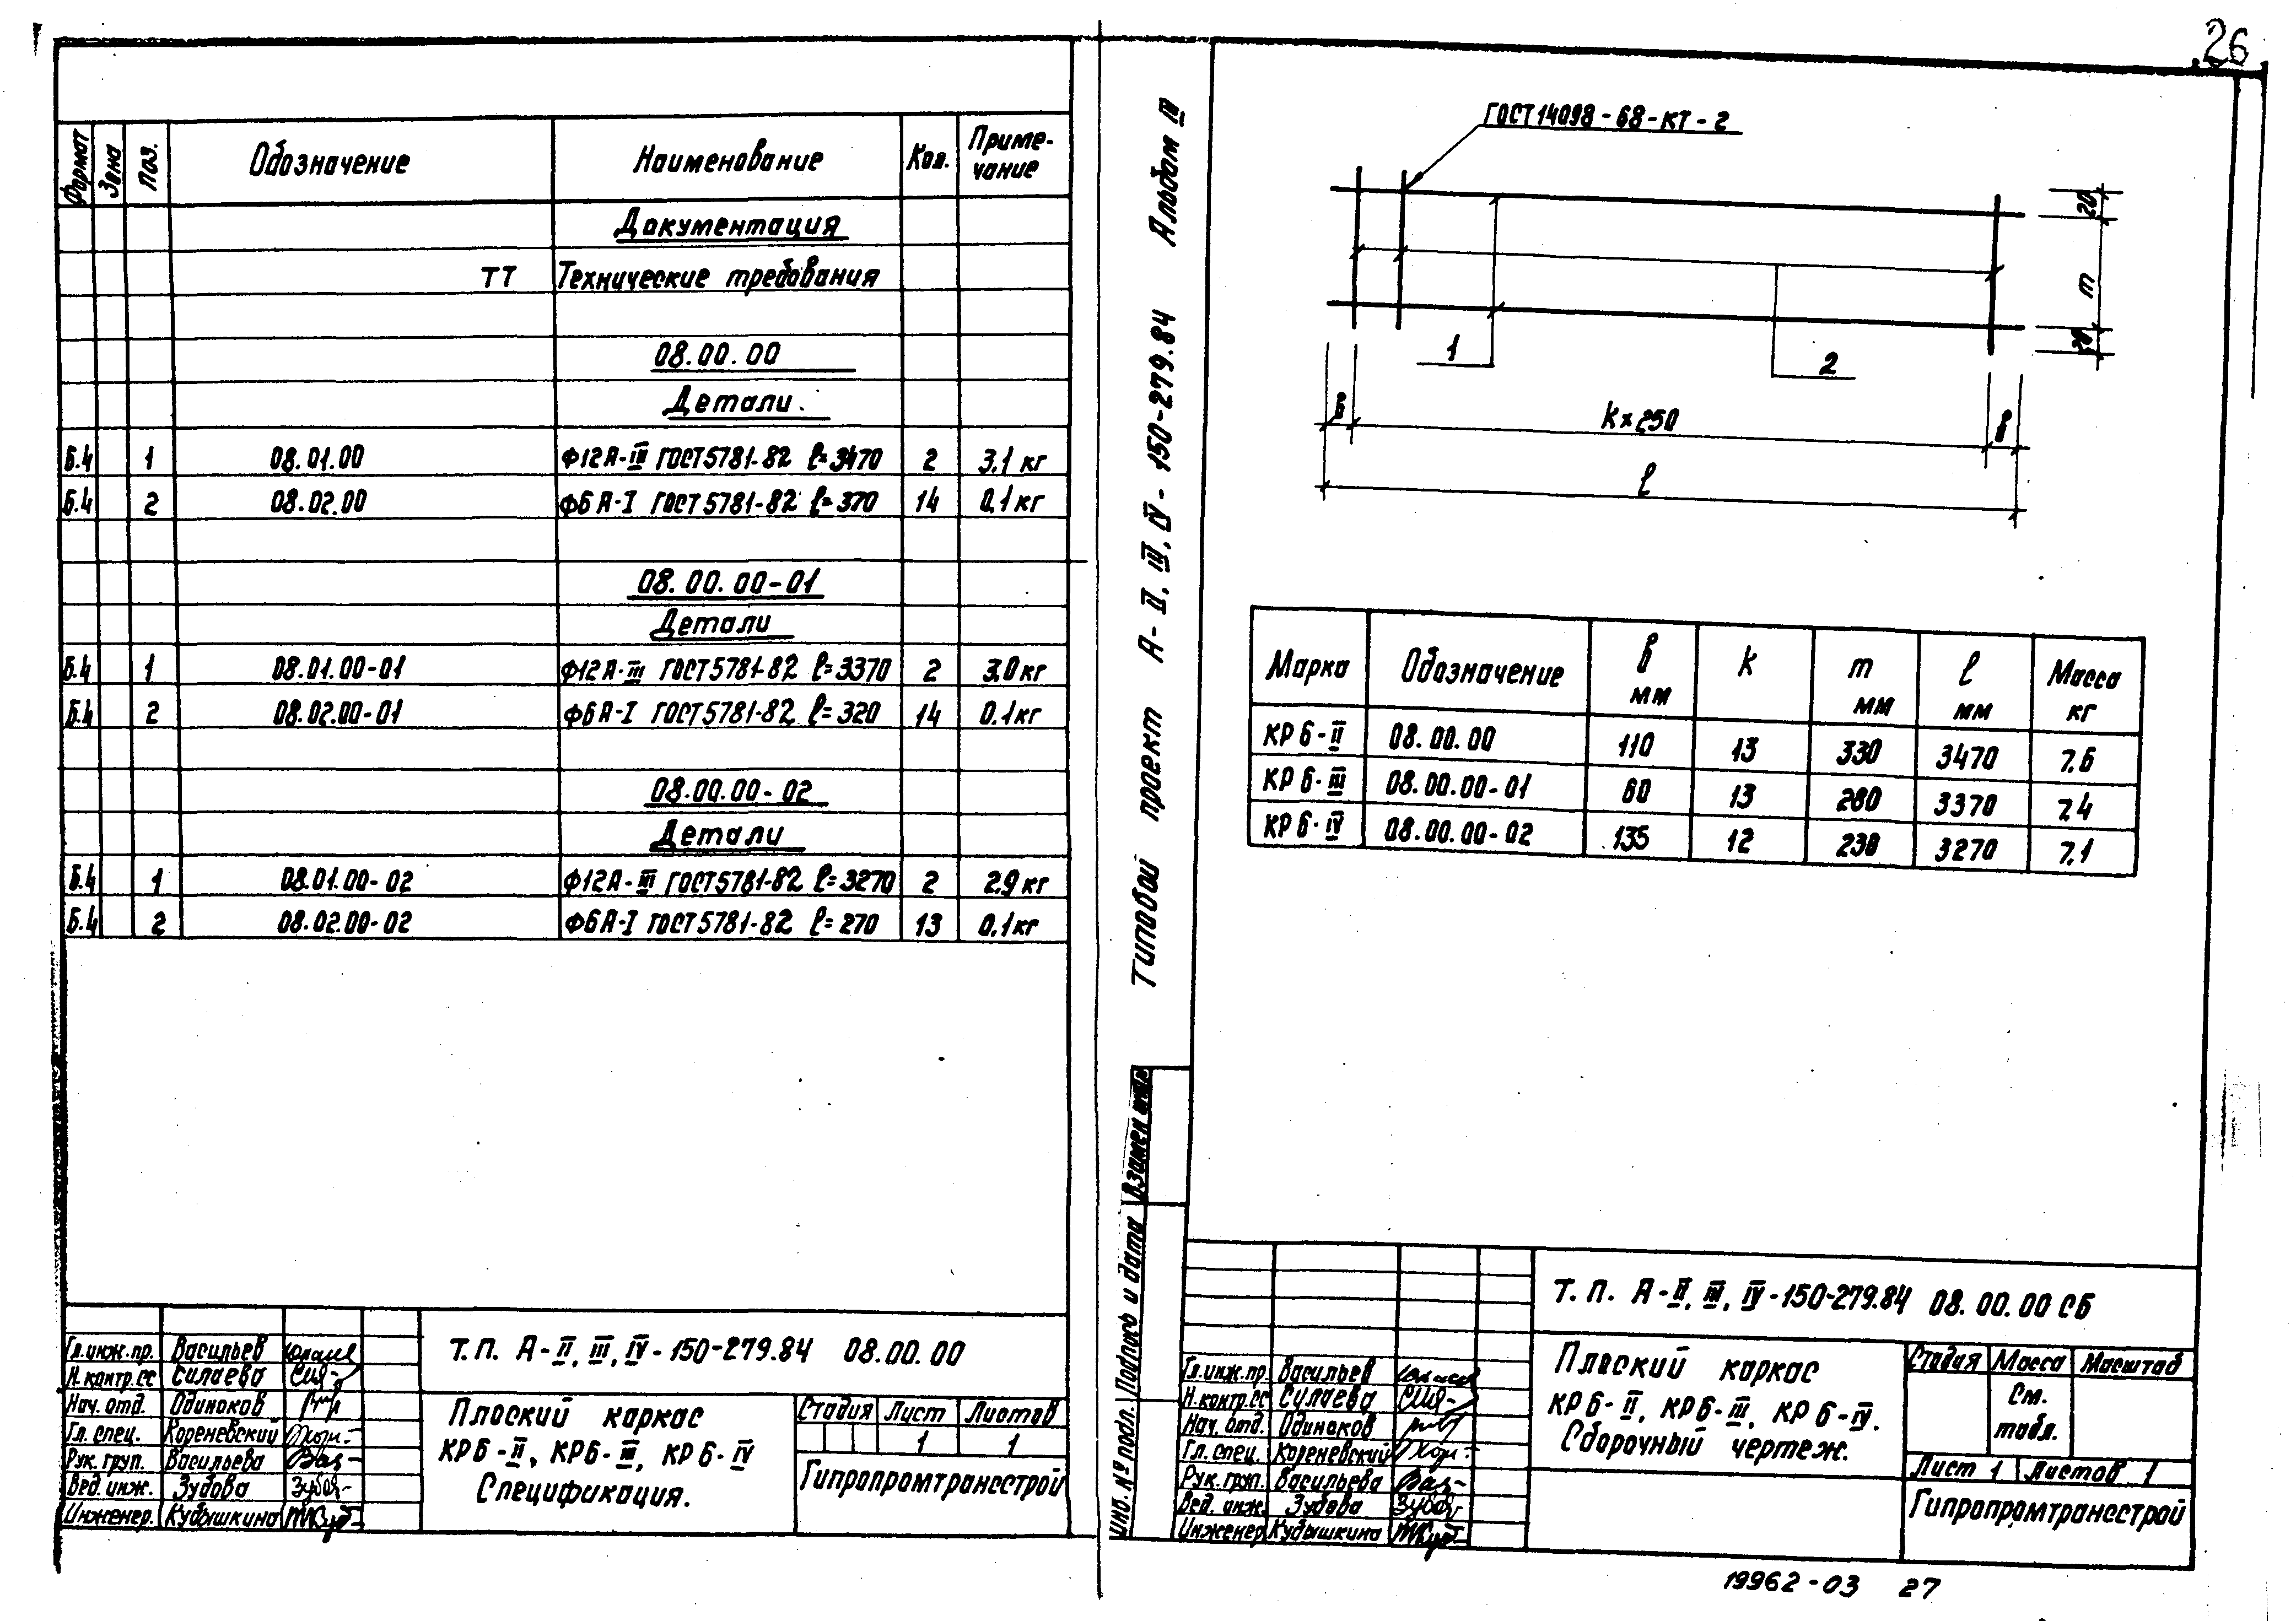 26
Формат Зона Поз. Обозначение Наименование Кол. Приме-
чание
Документация
ТТ Технические требования
08.00.00
Детали.
Б.4 1 08.01.00 Ф12А-III ГОСТ5781-82 ℓ=3470 2 3.1 кг
Б.4 2 08.02.00 Ф6А-I ГОСТ5781-82 ℓ=370 14 0.1 кг
08.00.00-01
Детали
Б.4 1 08.01.00-01 Ф12А-III ГОСТ5781-82 ℓ=3370 2 3.0 кг
Б.4 2 08.02.00-01 Ф6А-I ГОСТ5781-82 ℓ=320 14 0.1 кг
08.00.00-02
Детали
Б.4 1 08.01.00-02 Ф12А-III ГОСТ5781-82 ℓ=3270 2 2.9 кг
Б.4 2 08.02.00-02 Ф6А-I ГОСТ5781-82 ℓ=270 13 0.1 кг
Гл.инж.пр. Васильев
Н.контр.сс Силаева
Нач. отд. Одиноков
Гл. спец. Кореневский
Рук. груп. Васильева
Вед. инж. Зубова
Инженер. Кубышкина
Т.П. А-II, III, IV-150-279.84 08.00.00
Плоский каркас
КР6-II, КР6-III, КР6-IV
Спецификация.
Стадия Лист Листов
1 1
Гипропромтрансстрой
Типовой проект А-II, III, IV-150-279.84 Альбом III
Инв. № подл. Подпись и дата Взамен инв.№
ГОСТ14098-68-КТ-2
20
m
20
1
2
в k×250 в
ℓ
Марка Обозначение в
мм k m
мм ℓ
мм Масса
кг
КР6-II 08.00.00 110 13 330 3470 7.6
КР6-III 08.00.00-01 60 13 280 3370 7.4
КР6-IV 08.00.00-02 135 12 230 3270 7.1
Гл.инж.пр. Васильев
Н.контр.сс Силаева
Нач. отд. Одиноков
Гл. спец. Кореневский
Рук. груп. Васильева
Вед. инж. Зубова
Инженер Кубышкина
Т.П. А-II, III, IV-150-279.84 08.00.00 СБ
Плоский каркас
КР6-II, КР6-III, КР6-IV.
Сборочный чертеж.
Стадия Масса Масштаб
См.
табл.
Лист 1 Листов 1
Гипропромтрансстрой
19962-03 27